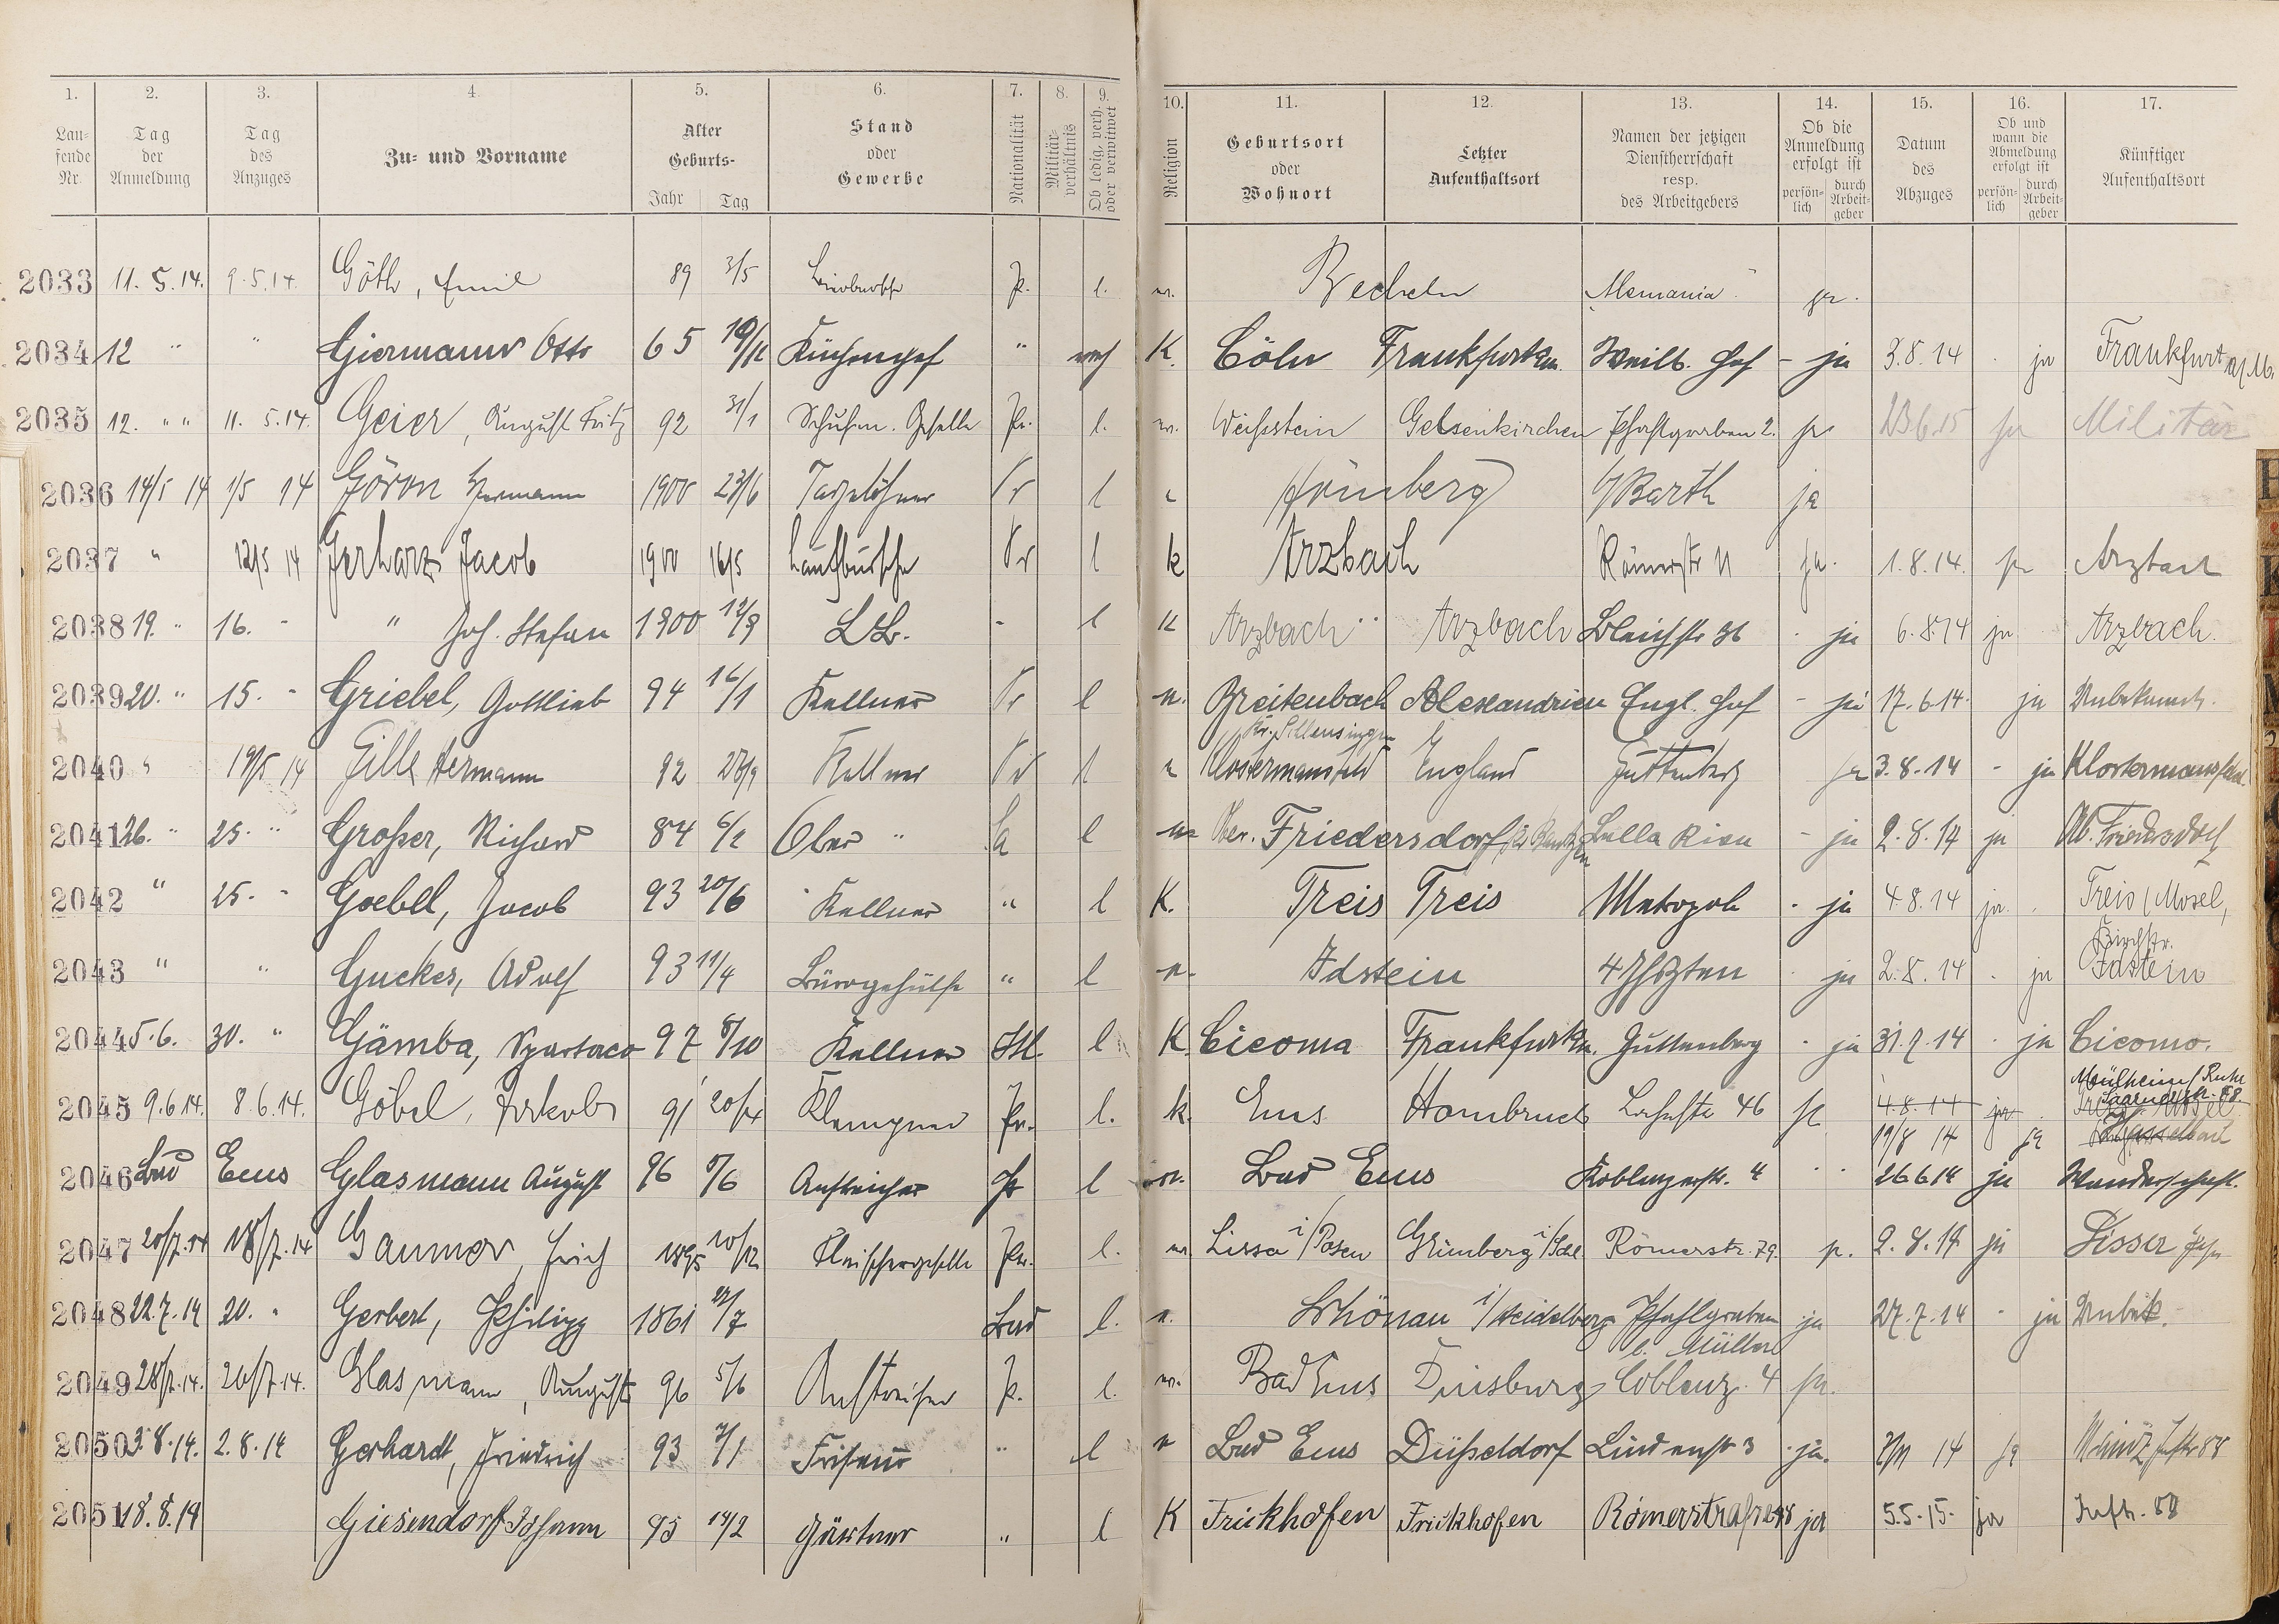 1. 2. 3. 4. 5. 6. 7. 8. 9. 10. 11. 12. 13. 14. 15. 16. 17.
Lau-
fende
Nr.
Tag
der
Anmeldung
Tag
des
Anzuges
Zu- und Vorname
Alter
Geburts-
Jahr Tag
Stand
oder
Gewerbe
Nationalität
Militär-
verhältnis
Ob ledig, verh.
oder verwitwet
Religion
Geburtsort
oder
Wohnort
Letzter
Aufenthaltsort
Namen der jetzigen
Dienstherrschaft
resp.
des Arbeitgebers
Ob die
Anmeldung
erfolgt ist
persön-
lich
durch
Arbeit-
geber
Datum
des
Abzuges
Ob und
wann die
Abmeldung
erfolgt ist
persön-
lich
durch
Arbeit-
geber
Künftiger
Aufenthaltsort
2033 11.5.14. 9.5.14. Göth, Emil 89 3/5 Pr. l. Becheln Alemania ja.
2034 12 " " Giermann Otto 65 Küchenchef " K. Cöln Frankfurt Weilb. Hof - ja 3.8.14 - ja Frankfurt a/M.
2035 12. " " 11.5.14. Geier, August Fritz 92 31/1 Schuhm. Geselle Pr. l. Weißstein Gelsenkirchen Pfahlgraben 2. ja 23.6.15 ja Militär
2036 14/5 14 1/5 14 Hermann 1900 23/6 Tagelöhner Pr l Barth ja
2037 " 12/5 14 Gerharz Jacob 1900 16/5 Laufbursche Pr l k Arzbach Römerstr 11 ja. 1.8.14. ja Arzbach
2038 19. " 16. - " Joh. Stefan 1900 12/9 - l K Arzbach Arzbach Bleichstr 36 - ja 6.8.14 ja Arzbach.
2039 20. " 15. - Griebel, Gottlieb 94 16/1 Kellner Pr l Breitenbach Alexandrien Engl. Hof - ja 17.6.14. ja Unbekannt.
2040 " 19/5 14 Gille Hermann 92 Kellner Pr l Klostermansfeld England Guttenberg ja 3.8.14 - ja Klostermansfeld.
2041 26. " 25. " Großer, Richard 84 6/2 Ober " Sa l Ober. Friedersdorf Bella Riva - ja 2.8.14 ja Ob. Friedersdorf
2042 " 25. - Goebel, Jacob 93 20/6 Kellner " l K. Treis Treis Metropole - ja 4.8.14 ja. Treis/Mosel,
2043 " " Guckes, Adolf 93 11/4 Bürogehülfe " l Idstein 4 Jhrzten - ja 2.8.14 - ja Kirchstr. Idstein
2044 5.6. 30. " Gämba, Spartaco 97 8/10 Kellner Itl. l K. Cicoma Frankfurt Guttenberg - ja 31.7.14 - ja Cicomo.
2045 9.6.14. 8.6.14. Göbel, Jakob 91 20/4 Klempner Pr. l. k. Ems Hombruch 46 ja 4.8.14 ja Mülheim/Ruhr
19/8 14 ja
2046 Bad Ems Glasmann August 96 5/6 Anstreicher Pr l Bad Ems Koblenzerstr. 4 " 26 6 14 ja Wanderschaft.
2047 20/7.14 18/7.14 Gaumer, Erich 1895 10/12 Fleischergeselle Pr. l. Lissa i/Posen Grünberg i/Schl. Römerstr. 79. 2.8.14 ja Lissa
2048 22.7.14 20. " Gerbert, Philipp 1861 22/7 Bad l. Schönau i/Heidelberg Pfahlgraben ja 27.7.14 - ja Unbek.
b. Müller
2049 28/7.14. 26/7.14. Glasmann, August 96 5/6 Anstreicher Pr. l. Bad Ems Duisburg Coblenz. 4 ja.
2050 3.8.14. 2.8.14 Gerhardt, Friedrich 93 7/1 Friseur " l Bad Ems Düsseldorf Lindenstr 3 - ja. 7/11 14 ja Mainz,
2051 18.8.14 Giesendorf Johann 95 14/2 Gärtner " l K Frickhofen Frickhofen Römerstraße 48 ja 5.5.15. ja